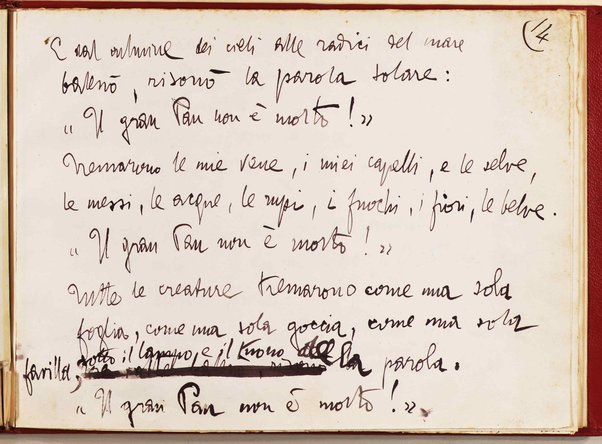 14
E dal culmine dei cieli alle radici del mare
balenò, risonò la parola solare:
« Il gran Pan non è morto! »
Tremarono le mie vene, i miei capelli, e le selve,
le messi, le acque, le rupi, i fuochi, i fiori, le belve.
« Il gran Pan non è morto! »
Tutte le creature tremarono come una sola
foglia, come una sola goccia, come una sola
favilla, sotto il lampo e il tuono della parola.
« Il gran Pan non è morto! ».